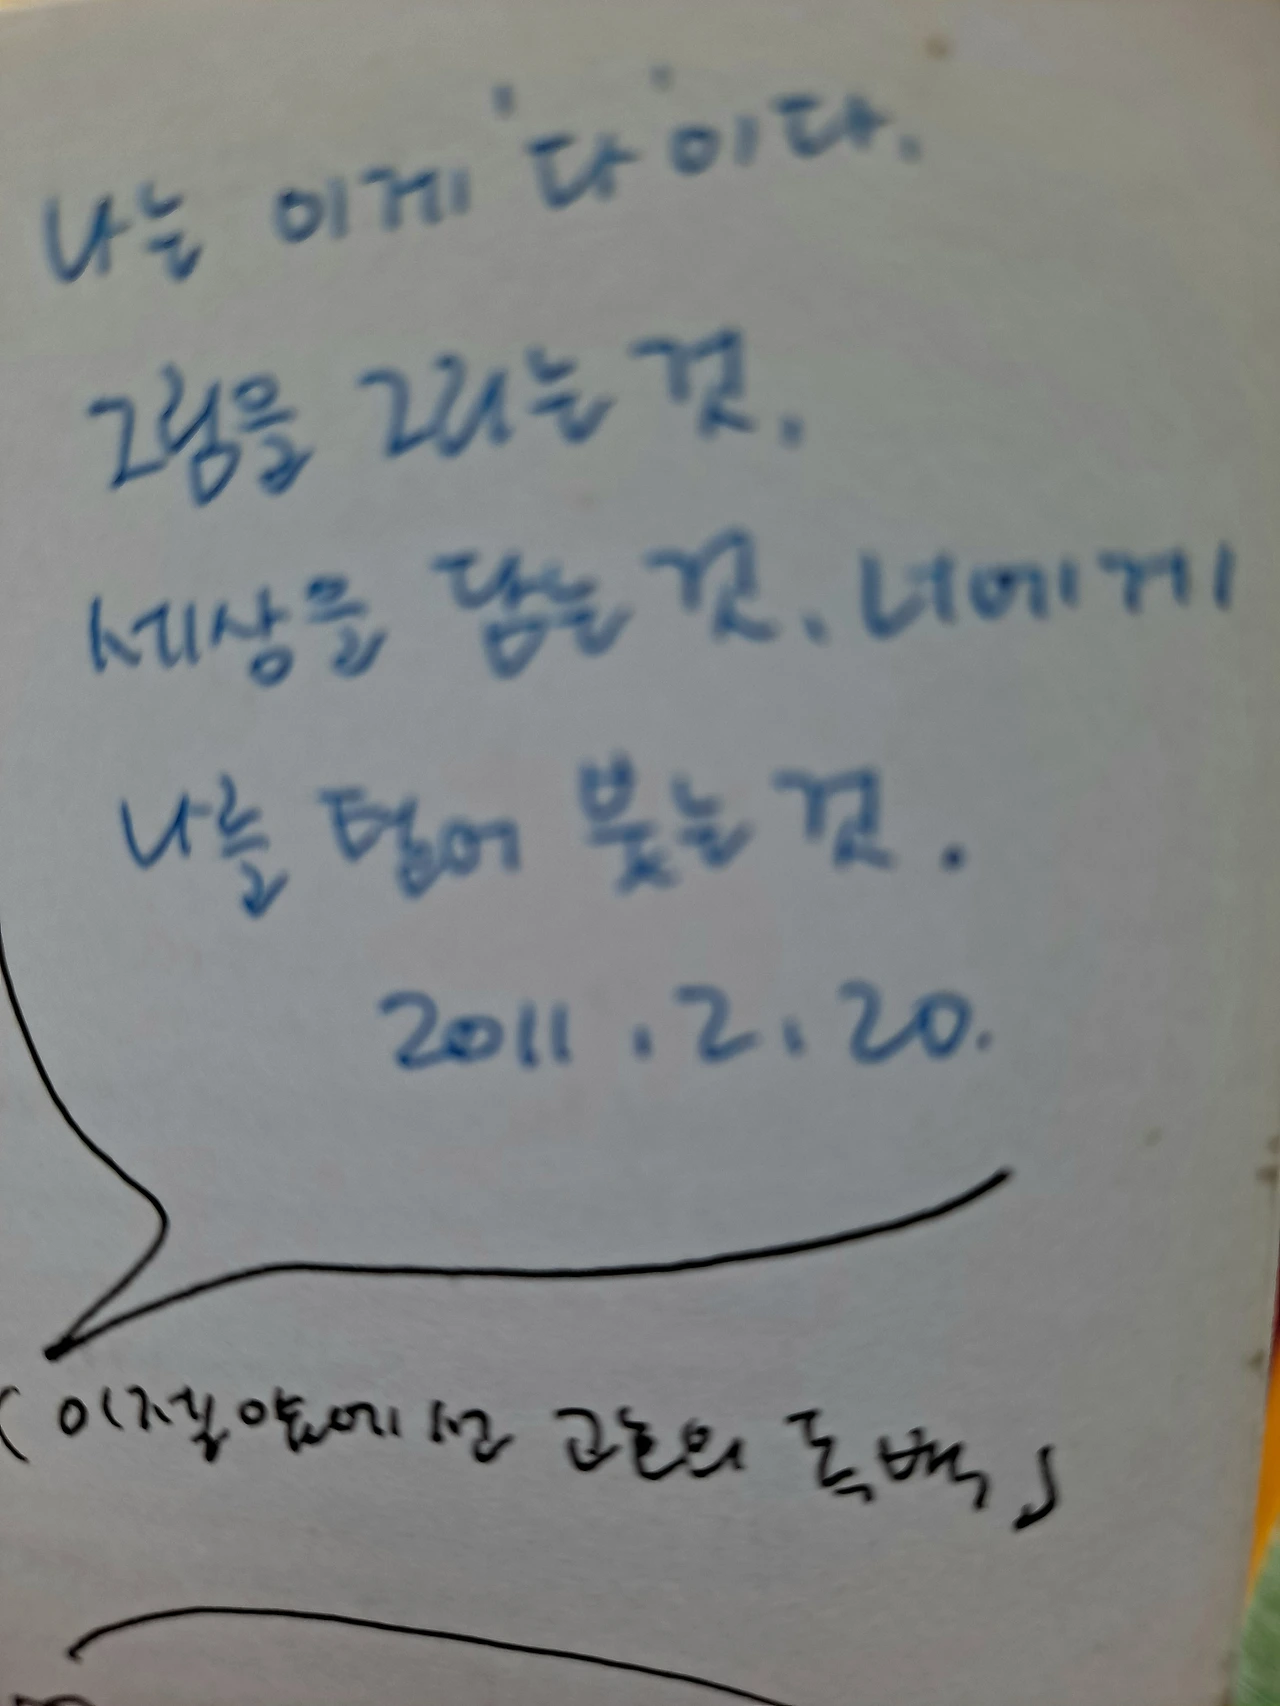 나는 이게 '다'이다.
그림을 그리는 것.
세상을 담는 것. 너에게
나를 털어 붓는 것.
2011. 2. 20.
(이젤 앞에 선 고흐의 독백」